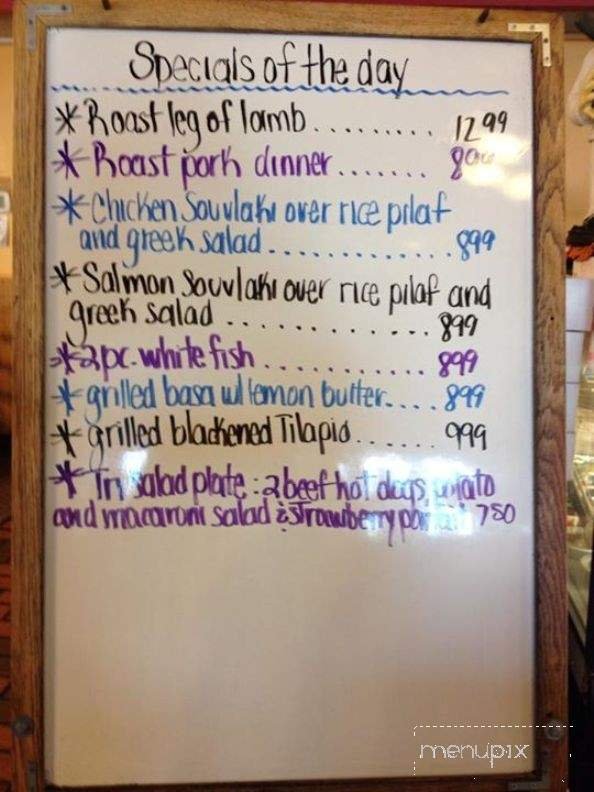 Specials of the day
* Roast leg of lamb......... 12 99
* Roast pork dinner.......
* Chicken Souvlaki over rice pilaf
and greek salad............. 899
* Salmon Souvlaki over rice pilaf and
greek salad ............. 899
* 2pc. white fish........... 899
* grilled basa w/ lemon butter.... 899
* grilled blackened Tilapia...... 999
* Tri salad plate: 2 beef hot dogs, potato
and macaroni salad & strawberry 750
menupix